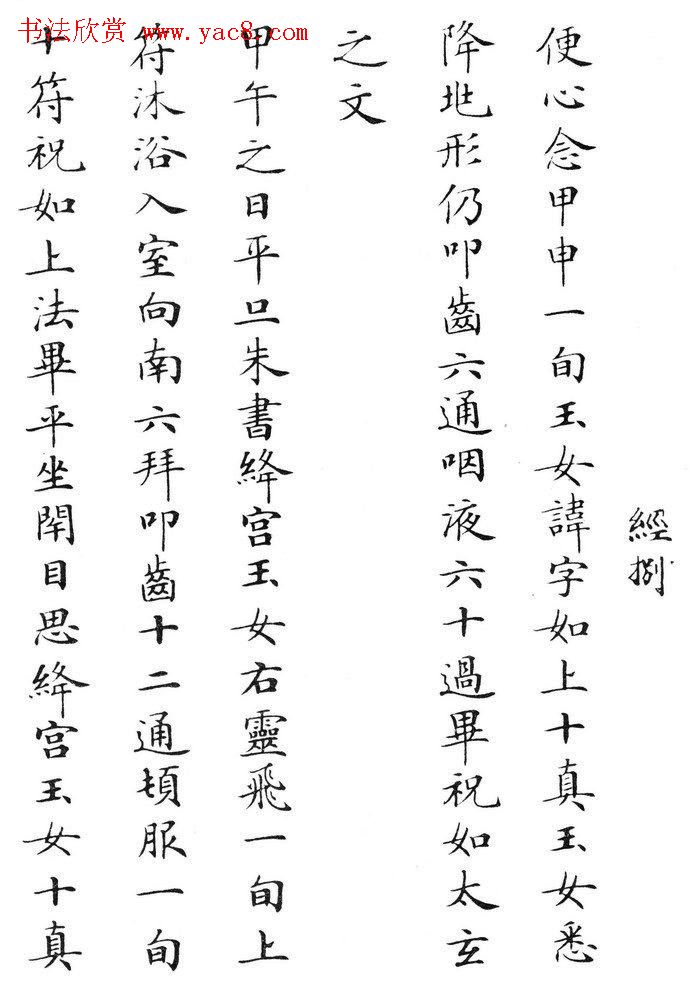 书法欣赏 www.yac8.com
經捌
便心念甲申一旬玉女諱字如上十真玉女悉
降地形仍叩齒六通咽液六十過畢祝如太玄
之文
甲午之日平旦朱書絳宫玉女右靈飛一旬上
符沐浴入室向南六拜叩齒十二通頓服一旬
十符祝如上法畢平坐閉目思絳宫玉女十真